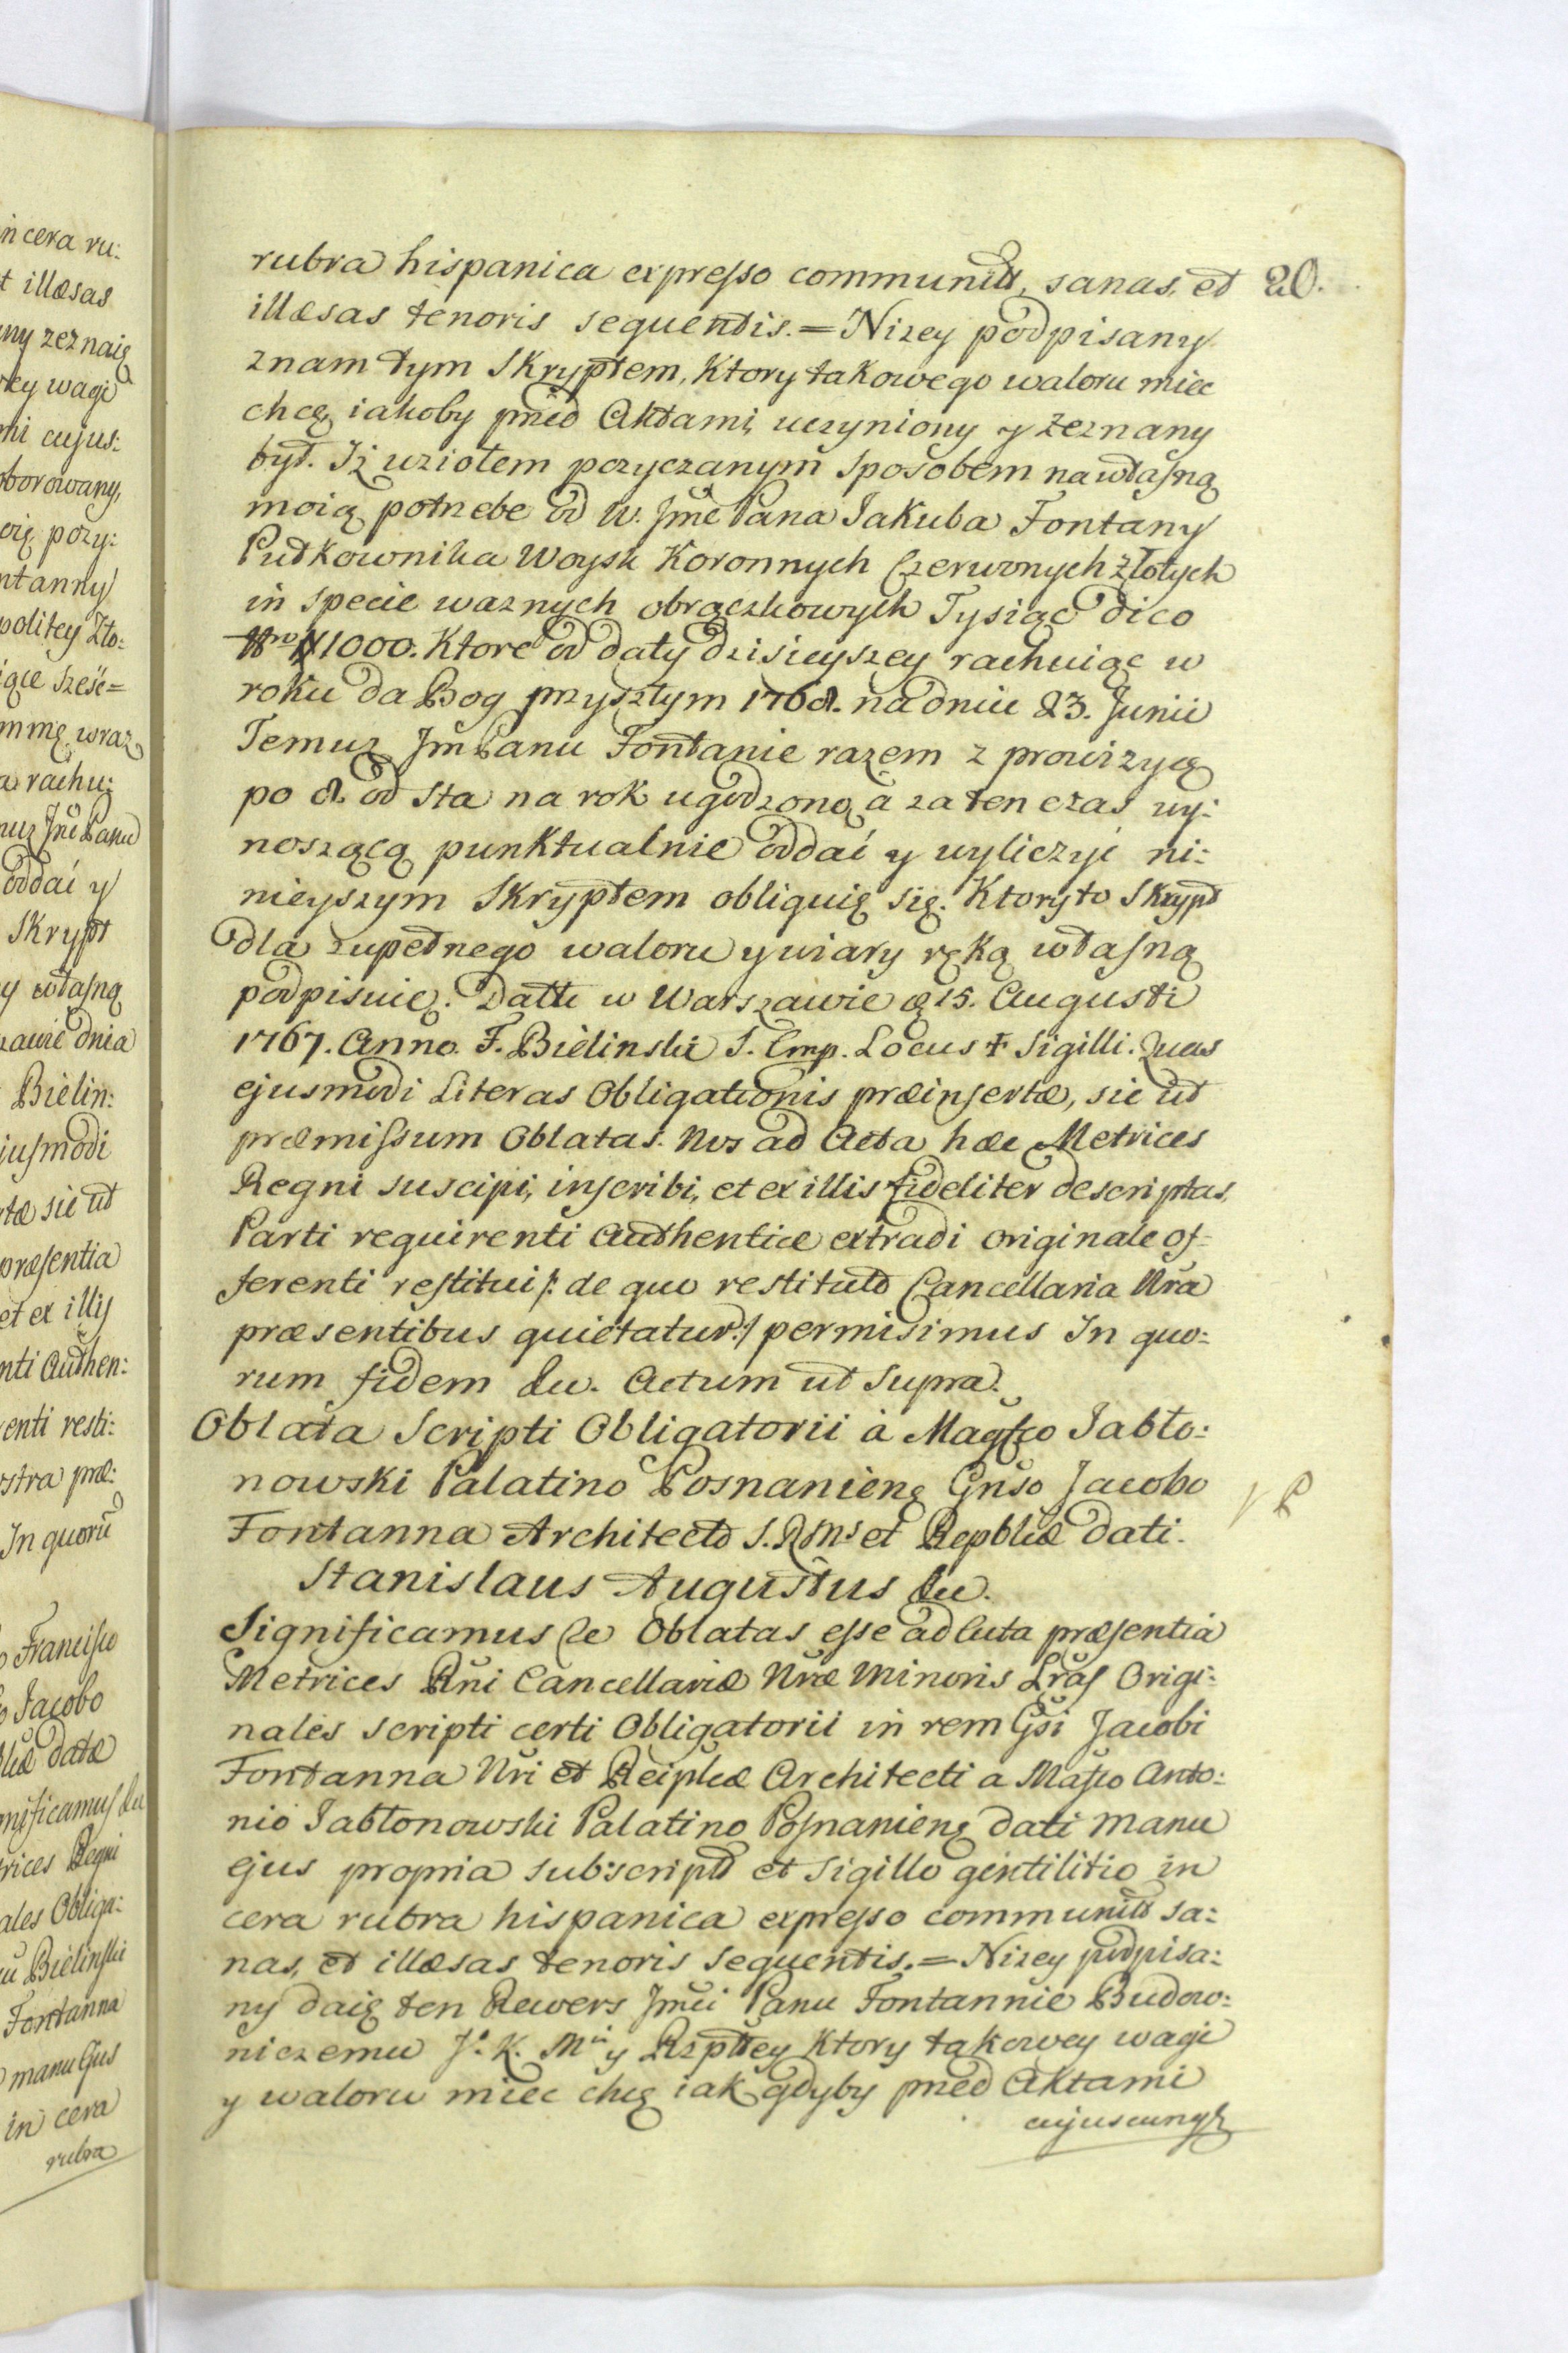 in cera ru:
t illæsas
ny zeznaię
wagi
mi cujus:
borowany,
pozy:
ntanny
politey Zło:
iące sześć=
mmę wraz
a rachu:
muz Jmć Panu
oddać y
Skrypt
y własną
zawie dnia
Bielin:
jusmodi
rtæ sic ut
præsentia
et ex illis
nti Authen:
enti resti:
stra præ:
In quorū
Francisco
o Jacobo
licæ datæ
nificamus &c
rices Regni
ales Obliga:
Bielinski
Fontanna
manu Ejus
in cera
rubra
rubra hispanica expresso communit, sanas, et 20.
illæsas tenoris sequentis.=Nizey podpisany
znam tym Skryptem, Ktory takowego waloru miec
chcę, iakoby przed Aktami, uczyniony y zeznany
był. Iż uziołem pozyczanym sposobem na własną
moią potrzebe od W. Jmć Pana Jakuba Fontany
Pułkownika Woysk Koronnych Czerwonych złotych
in specie waznych obrączkowych Tysiąc dico
1000. Ktore od daty dzisieyszey rachuiąc w
roku da Bog przyszłym 1768. na dniu 23. Junii
Temuz Jm Panu Fontanie razem z prowizyą
po 8. od sta na rok ugodzoną a za ten czas wy:
noszącą punktualnie oddać y wyliczyć ni:
nieyszym Skryptem obliguię się. Ktory to Skrypt
dla zupełnego waloru y wiary ręką własną
podpisuię. Datt w Warszawie d 15. Augusti
1767. Anno. F. Bielinski S. Emp. Locus + Sigilli. Quas
ejusmodi Literas Obligationis præinsertæ, sic ut
præmissum Oblatas. Nos ad Acta hæc Metrices
Regni suscipi, inscribi, et ex illis fideliter descriptas,
Parti requirenti Authentice extradi originale of=
ferenti restitui /: de quo restituto Cancellaria Nra
præsentibus quietatur :/ permisimus In quo:
rum fidem &c. Actum ut supra.
Oblata Scripti Obligatorii à Magfco Jabło:
nowski Palatino Posnanien Gnso Jacobo
Fontanna Architecto S. R Ms et Repblicæ dati.
Stanislaus Augustus &c.
Significamus &c Oblatas esse ad Acta præsentia
Metrices Rni Cancellariæ Nræ Minoris Lras Origi:
nales scripti certi Obligatorii in rem Gsi Jacobi
Fontanna Nri et Reiplcæ Architecti a Mafco Anto:
nio Jabłonowski Palatino Posnanien dati manu
ejus propria subscript et Sigillo gentilitio in
cera rubra hispanica expresso communit sa:
nas, et illæsas tenoris sequentis.=Nizey podpisa:
ny daię ten Rewers Jmci Panu Fontannie Budow:
niczemu J. K. Mci y Rzpltey Ktory takowey wagi
y waloru miec chcę iak gdyby przed Aktami
cujuscunq